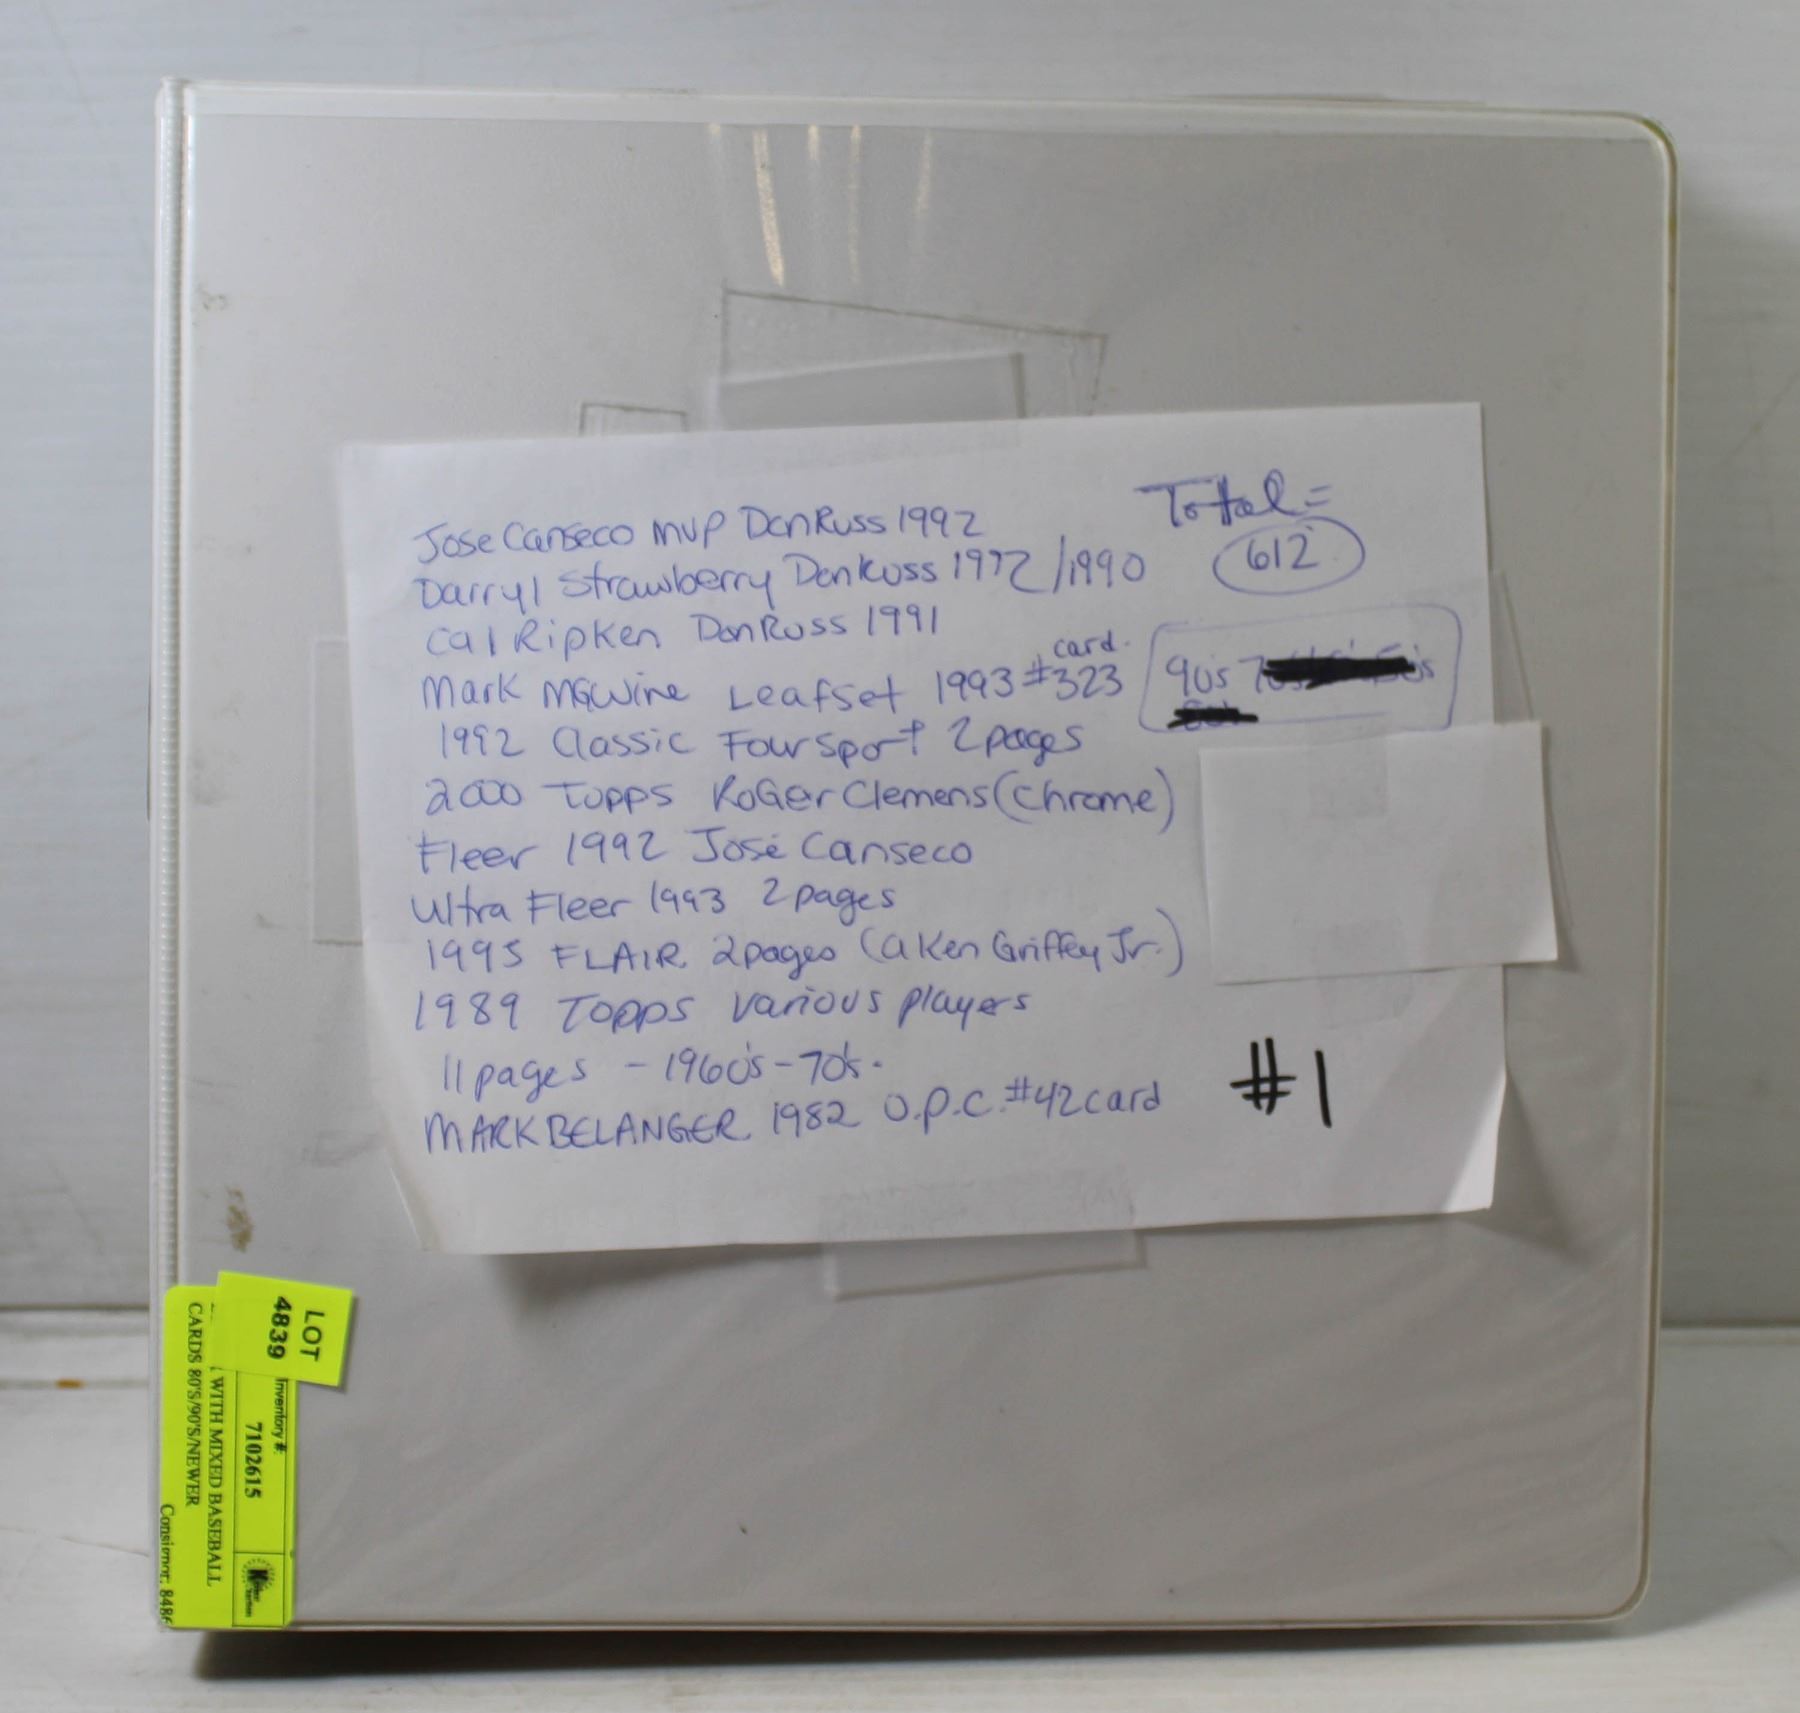 Jose Canseco MVP DonRuss 1992
Darryl Strawberry DonRuss 1992/1990
Cal Ripken DonRuss 1991
Mark McGwire Leafset 1993 #323 card.
1992 Classic Four Sport 2 pages
2000 Topps RoGer Clemens (Chrome)
Fleer 1992 José Canseco
Ultra Fleer 1993 2 pages
1995 FLAIR 2 pages (a Ken Griffey Jr.)
1989 Topps various players
11 pages - 1960's - 70's.
MARK BELANGER 1982 O.P.C. #42 card
Total =
612
90's
#1
LOT
4839
Inventory #:
7102615
WITH MIXED BASEBALL
CARDS 80'S/90'S/NEWER
Consignor: 8486